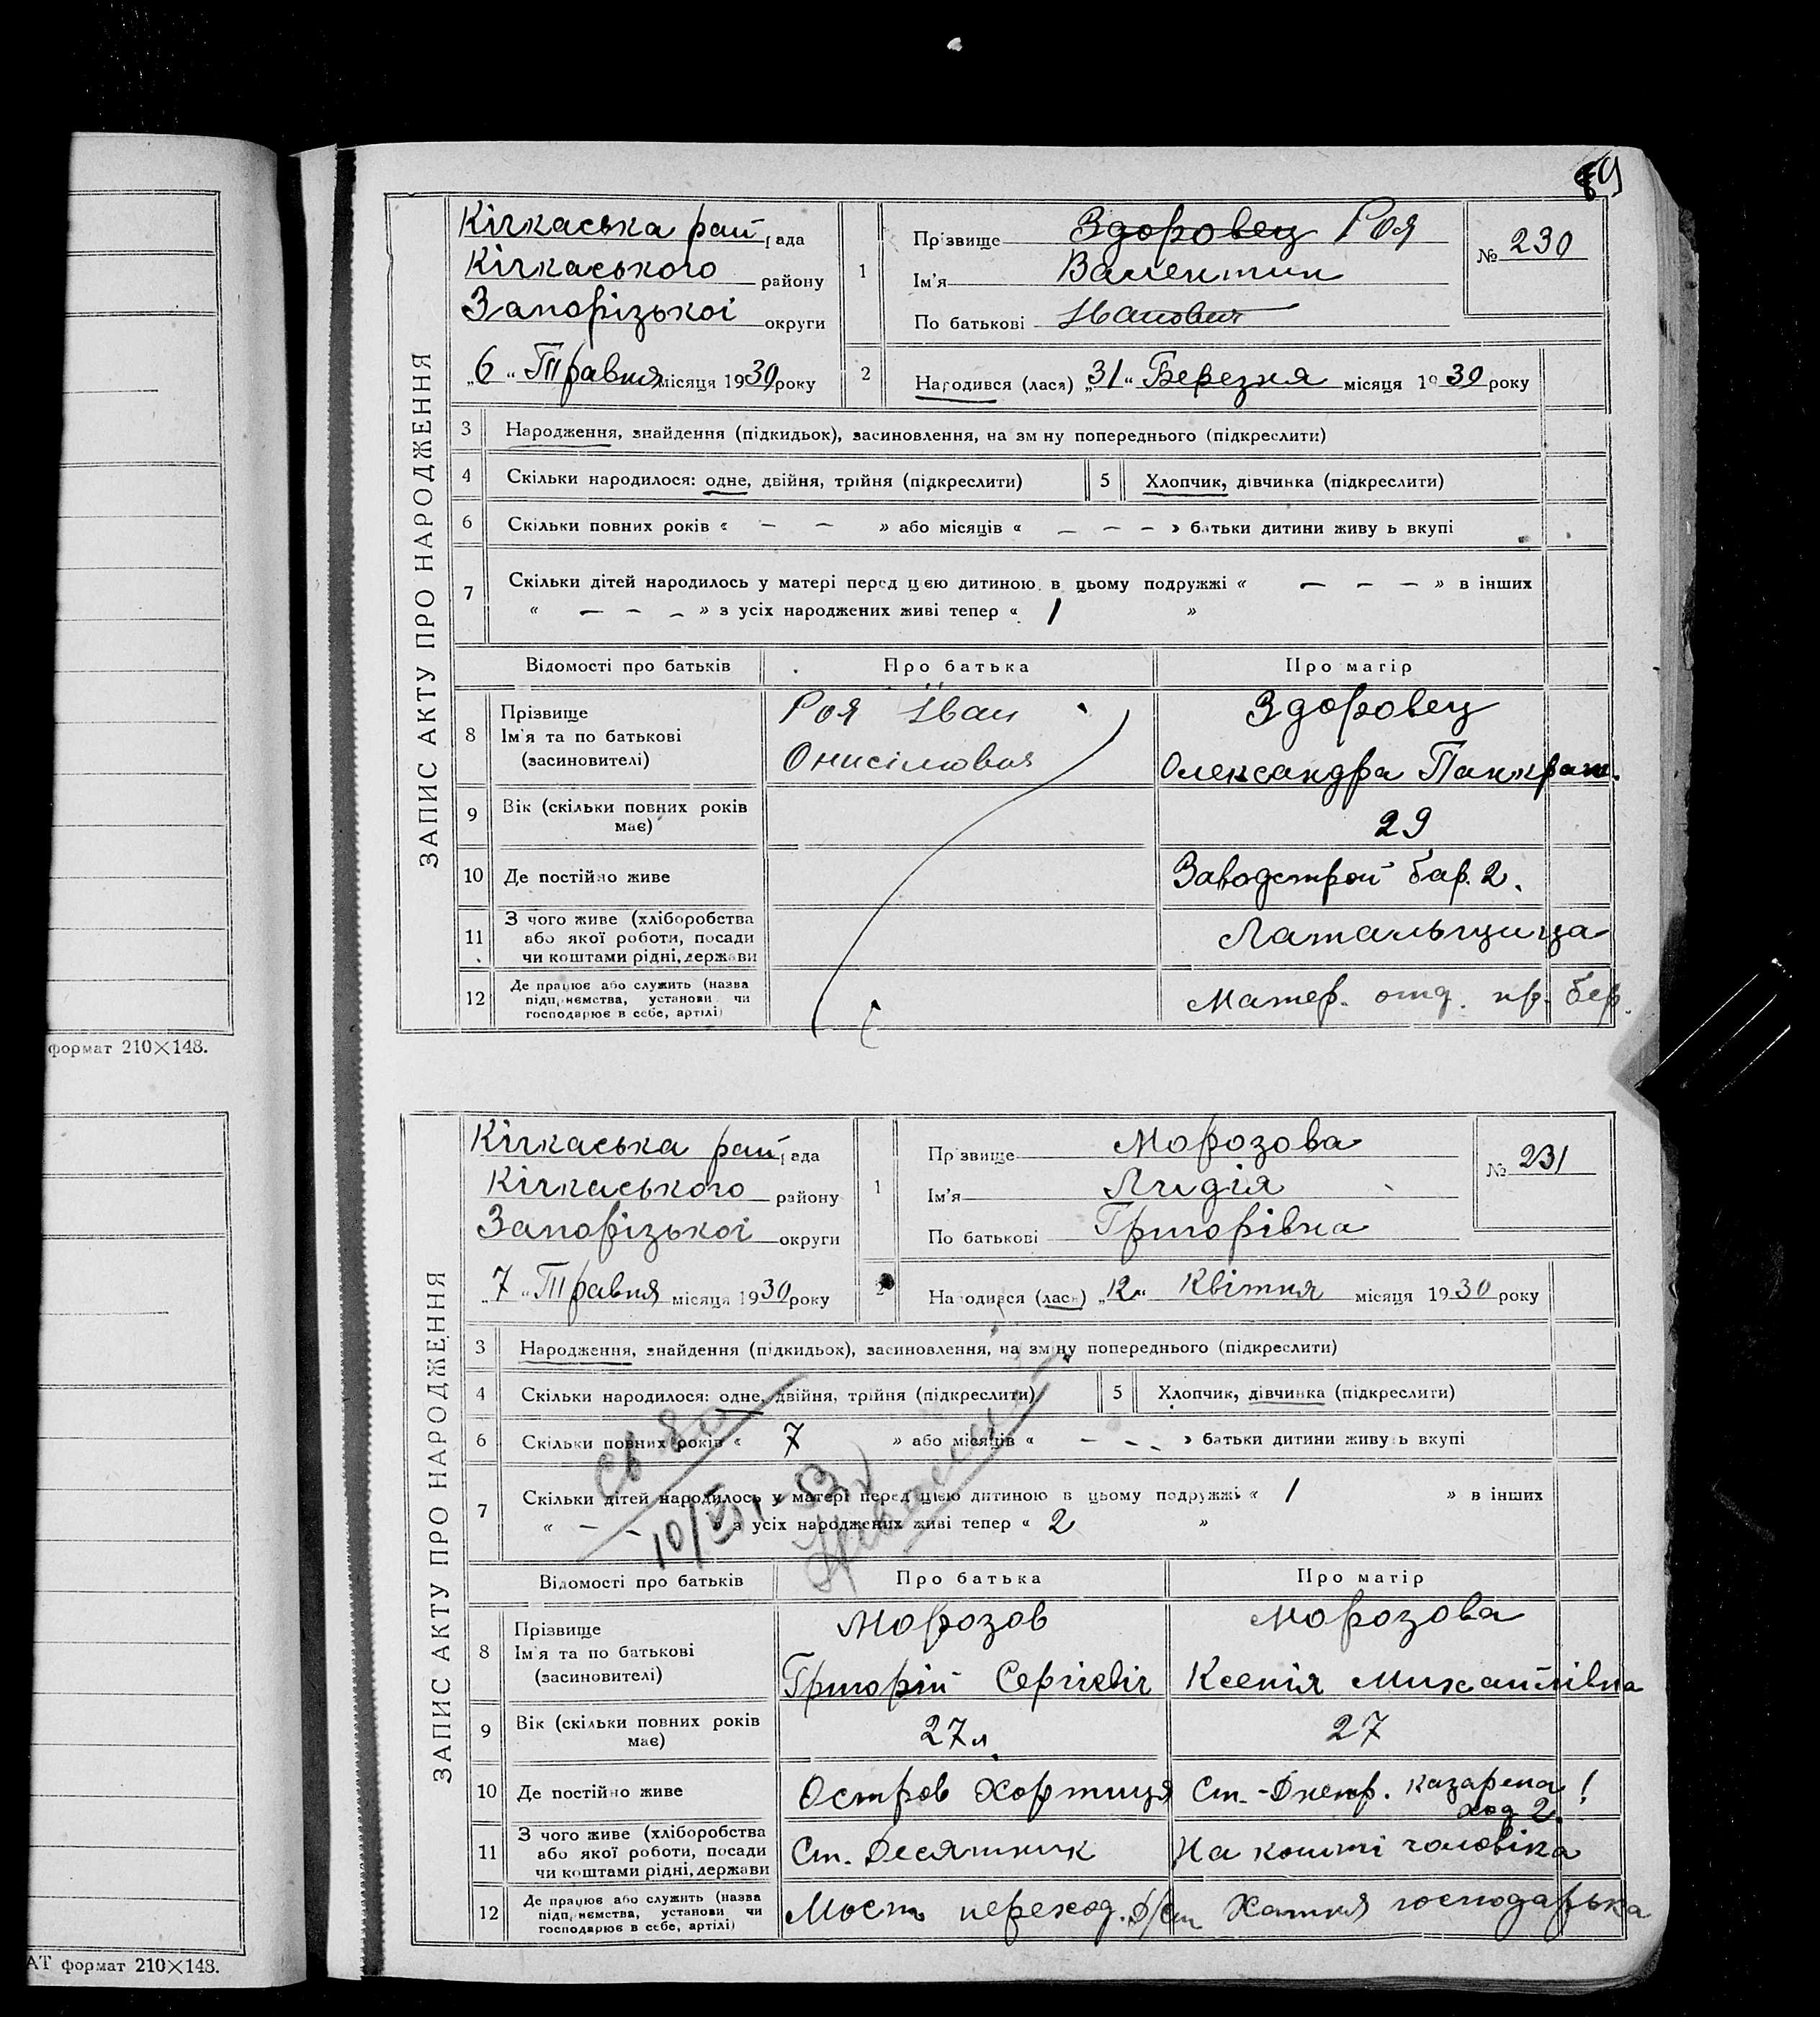 69
ЗАПИС АКТУ ПРО НАРОДЖЕННЯ
Кічкаська рай рада
Кічкаського району
Запорізької округи
„6“ Травня місяця 1930 року
1
Прізвище Здоровец Роя
Ім'я Валентин
По батькові Іванович
№ 230
2
Народився (лася) „31“ Березня місяця 1930 року
3 Народження, знайдення (підкидьок), засиновлення, на зм ну попереднього (підкреслити)
4 Скільки народилося: одне, двійня, трійня (підкреслити) 5 Хлопчик, дівчинка (підкреслити)
6 Скільки повних років « — — » або місяців « — — — » батьки дитини живу ь вкупі
7 Скільки дітей народилось у матері перед цією дитиною в цьому подружжі « — — — » в інших
« — — — » з усіх народжених живі тепер « 1 »
Відомості про батьків Про батька Про матір
8 Прізвище
Ім'я та по батькові
(засиновителі)
Роя Іван
Онисімович
Здоровец
Олександра Панкрат.
9 Вік (скільки повних років має) 29
10 Де постійно живе Заводстрой бар. 2.
11 З чого живе (хліборобства або якої роботи, посади чи коштами рідні, держави
12 Де працює або служить (назва підприємства, установи чи господарює в себе, артілі) Матер. отд. пр. бер.
формат 210×148.
ЗАПИС АКТУ ПРО НАРОДЖЕННЯ
Кічкаська рай рада
Кічкаського району
Запорізької округи
„7“ Травня місяця 1930 року
1
Прізвище Морозова
Ім'я Лидія
По батькові Григорівна
№ 231
2
Народився (лася) „12“ Квітня місяця 1930 року
3 Народження, знайдення (підкидьок), засиновлення, на зміну попереднього (підкреслити)
4 Скільки народилося: одне, двійня, трійня (підкреслити) 5 Хлопчик, дівчинка (підкреслити)
6 Скільки повних років « 7 » або місяців « — — — » батьки дитини живу ь вкупі
7 Скільки дітей народилось у матері перед цією дитиною в цьому подружжі « 1 » в інших
« — — » з усіх народжених живі тепер « 2 »
Відомості про батьків Про батька Про матір
8 Прізвище
Ім'я та по батькові
(засиновителі)
Морозов
Григорій Сергієвіч
Морозова
Ксенія Михайлівна
9 Вік (скільки повних років має) 27 л. 27
10 Де постійно живе Остров Хортиця Ст.-Днепр. казарена 2.
11 З чого живе (хліборобства або якої роботи, посади чи коштами рідні, держави Ст. Десятник На кошті чоловіка
12 Де працює або служить (назва підприємства, установи чи господарює в себе, артілі) Мост. переход. Д/ст Хатня господарька
АТ формат 210×148.